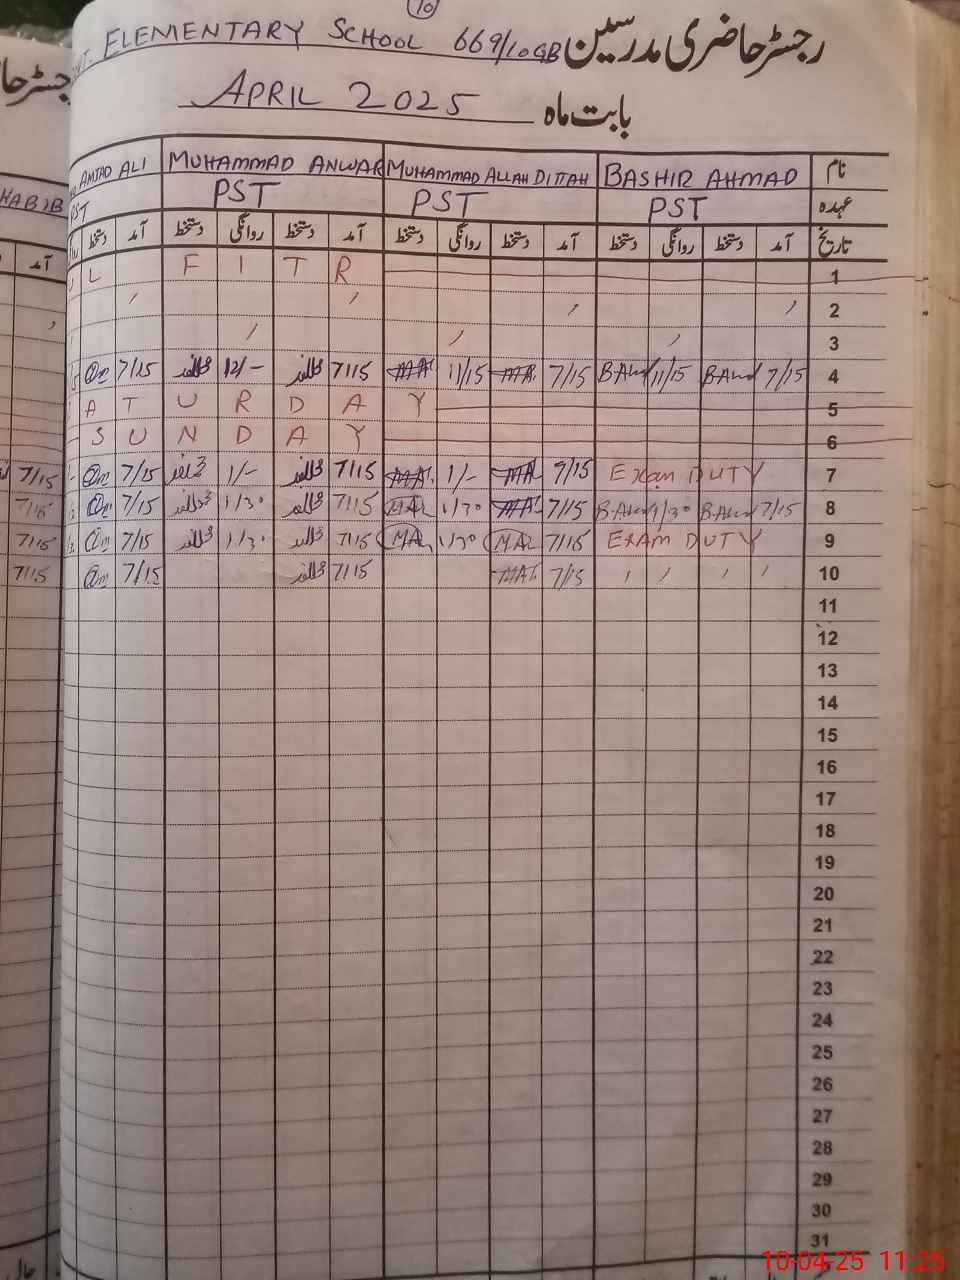 10
ELEMENTARY SCHOOL 669/10GB رجسٹر حاضری مدرسین
APRIL 2025 بابت ماہ
AMJAD ALI MUHAMMAD ANWAR MUHAMMAD ALLAH DITTAH BASHIR AHMAD نام
HABIB PST PST PST PST عہدہ
آمد دستخط آمد دستخط روانگی دستخط آمد دستخط روانگی دستخط آمد دستخط روانگی دستخط آمد تاریخ
L F I T R 1
2
3
7/15 12/- 7/15 11/15 7/15 11/15 7/15 4
A T U R D A Y 5
S U N D A Y 6
7/15 7/15 1/- 7/15 1/- 9/15 Exam DUTY 7
7/15 7/15 1/30 7/15 MAL 1/30 7/15 1/30 7/15 8
7/15 7/15 1/30 7/15 MAL 1/30 MAL 7/15 EXAM DUTY 9
7/15 7/15 7/15 7/15 10
11
12
13
14
15
16
17
18
19
20
21
22
23
24
25
26
27
28
29
30
31
10-04-25 11:25